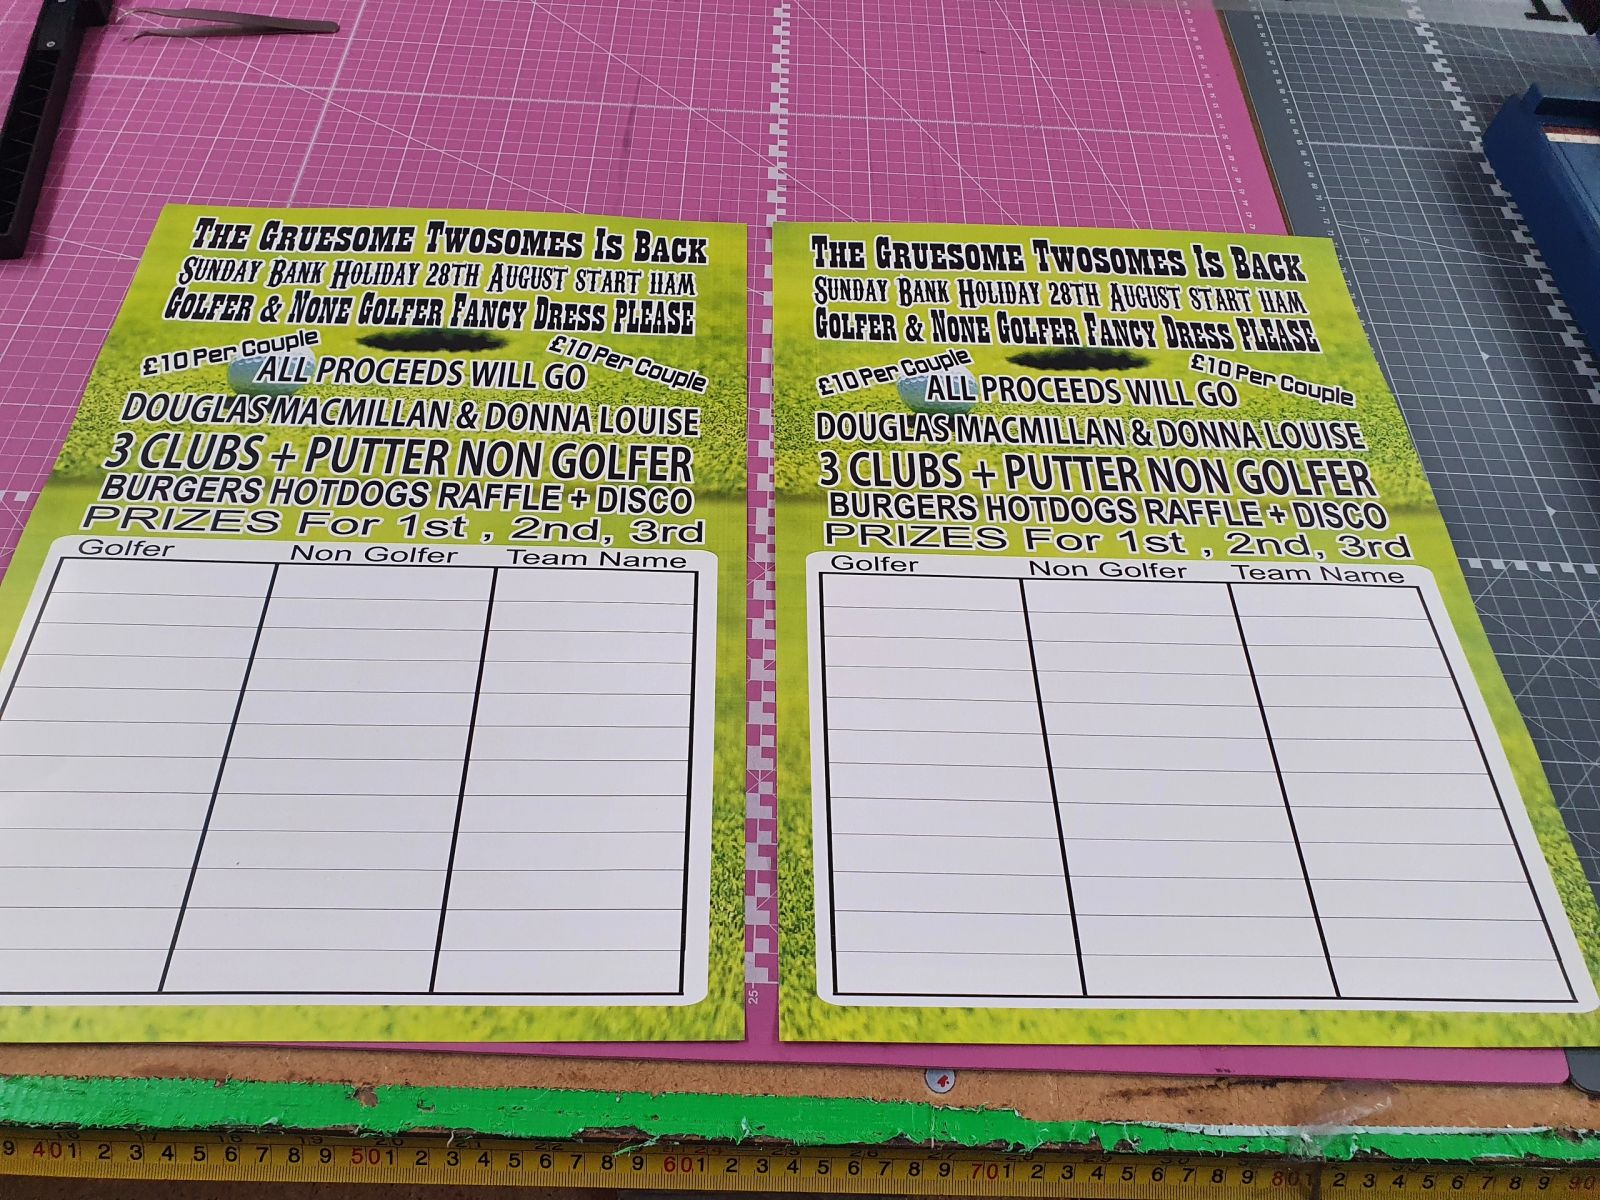 THE GRUESOME TWOSOMES IS BACK
SUNDAY BANK HOLIDAY 28TH AUGUST START 11AM
GOLFER & NONE GOLFER FANCY DRESS PLEASE
£10 Per Couple
£10 Per Couple
ALL PROCEEDS WILL GO
DOUGLAS MACMILLAN & DONNA LOUISE
3 CLUBS + PUTTER NON GOLFER
BURGERS HOTDOGS RAFFLE + DISCO
PRIZES For 1st , 2nd, 3rd
Golfer Non Golfer Team Name
THE GRUESOME TWOSOMES IS BACK
SUNDAY BANK HOLIDAY 28TH AUGUST START 11AM
GOLFER & NONE GOLFER FANCY DRESS PLEASE
£10 Per Couple
£10 Per Couple
ALL PROCEEDS WILL GO
DOUGLAS MACMILLAN & DONNA LOUISE
3 CLUBS + PUTTER NON GOLFER
BURGERS HOTDOGS RAFFLE + DISCO
PRIZES For 1st , 2nd, 3rd
Golfer Non Golfer Team Name
25
9 40 1 2 3 4 5 6 7 8 9 50 1 2 3 4 5 6 7 8 9 60 1 2 3 4 5 6 7 8 9 70 1 2 3 4 5 6 7 8 9 80 1 2 3 4 5 6 7 8 9 90